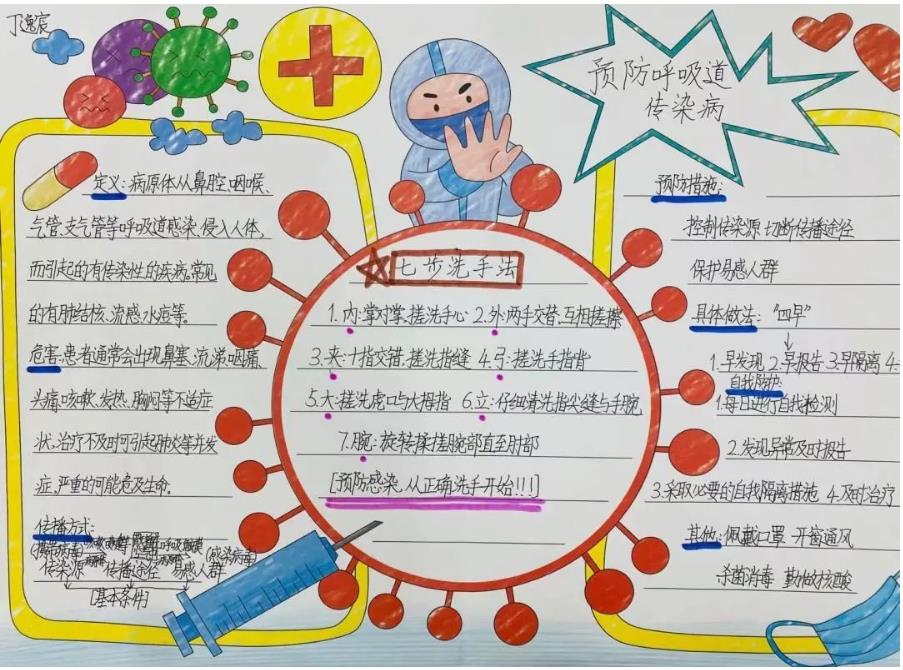 丁逸宸
预防呼吸道
传染病
定义:病原体从鼻腔、咽喉、
气管、支气管等呼吸道感染侵入人体,
而引起的有传染性的疾病。常见
的有肺结核、流感、水痘等。
危害:患者通常会出现鼻塞、流涕、咽痛、
头痛、咳嗽、发热、胸闷等不适症
状,治疗不及时可引起肺炎等并发
症,严重的可能危及生命。
传播方式:
(感染病毒)
传染源 传播途径 易感人群
[基本条件]
七步洗手法
1.内:掌对掌,搓洗手心 2.外:两手交替,互相搓擦
3.夹:十指交错,搓洗指缝 4.弓:搓洗手指背
5.大:搓洗虎口与大拇指 6.立:仔细清洗指尖缝与手腕
7.腕:旋转揉搓腕部直至肘部
[预防感染,从正确洗手开始!!!]
预防措施:
控制传染源 切断传播途径
保护易感人群
具体做法:“四早”
1.早发现 2.早报告 3.早隔离 4.
自我防护:
1.每日进行自我检测
2.发现异常及时报告
3.采取必要的自我隔离措施 4.及时治疗
其他:佩戴口罩 开窗通风
杀菌消毒 勤做核酸